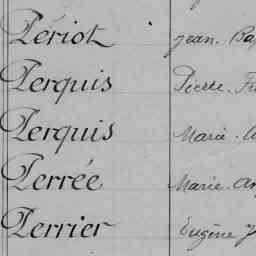 Périot Jean. Ba
Perquis Pierre. Fr
Perquis Marie. A
Perrée Marie. An
Perrier Eugène J